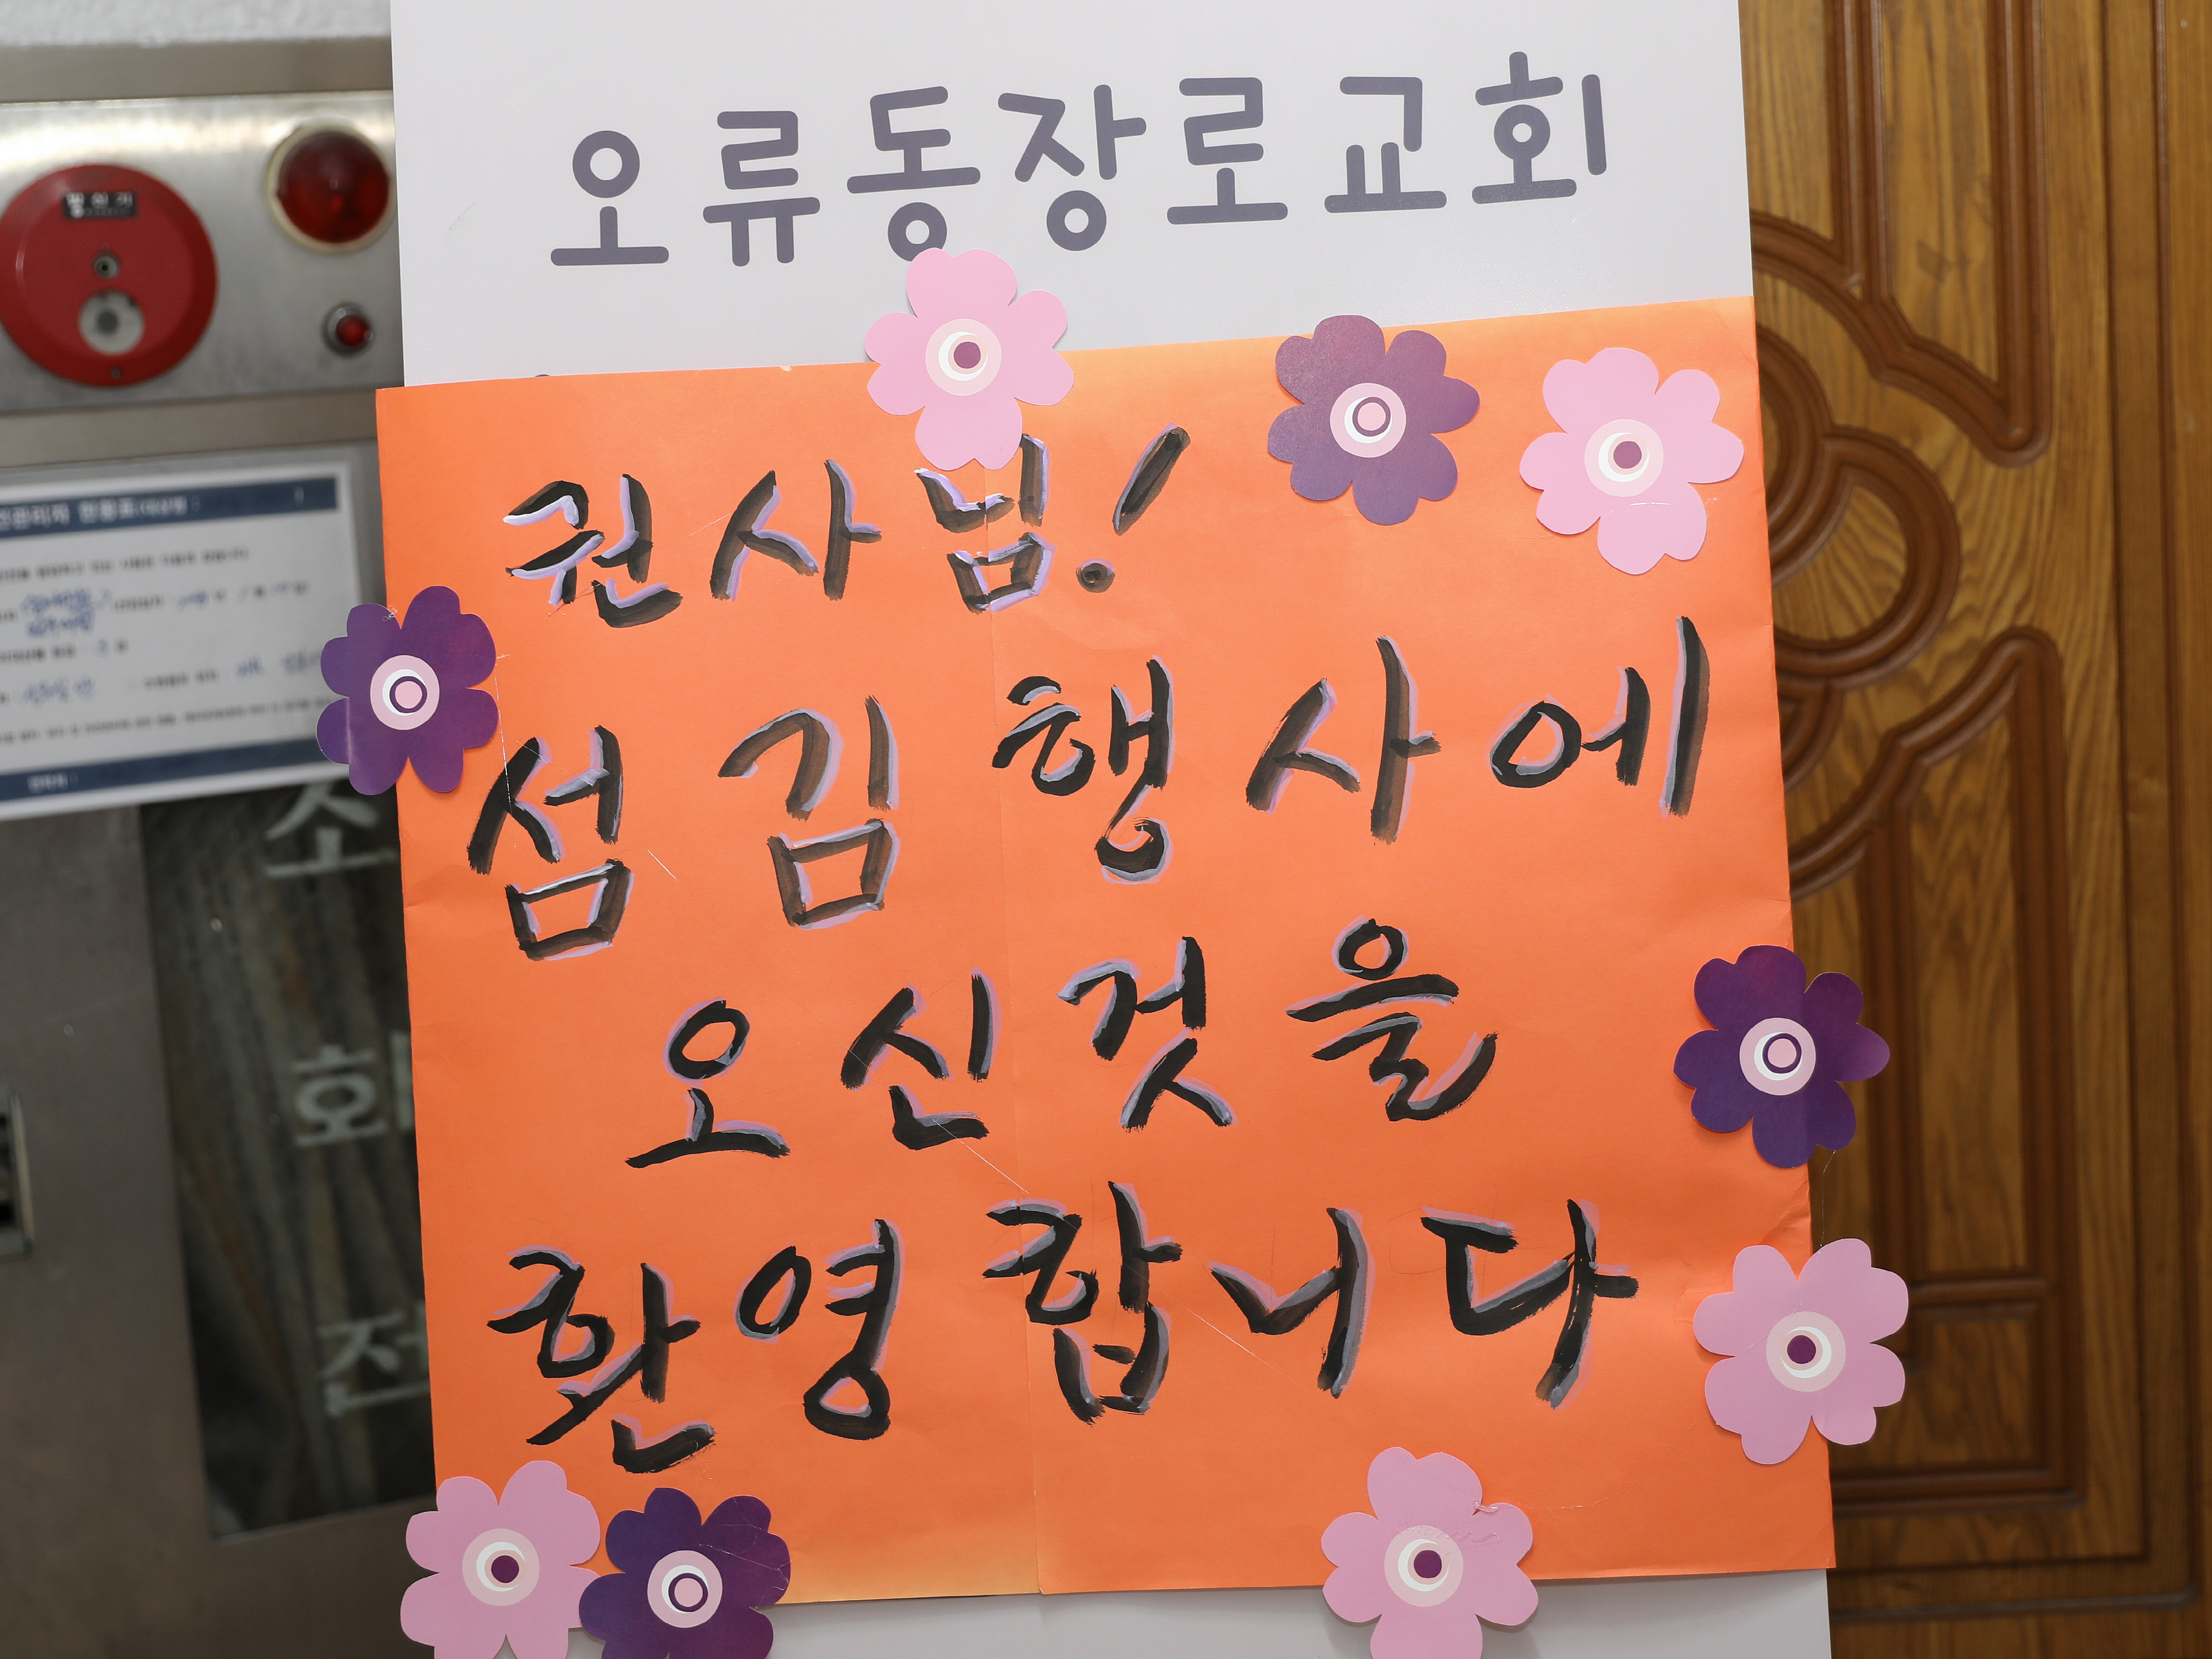 오류동장로교회
권사님!
섬김행사에
오신것을
환영합니다
발신기
소
화
전